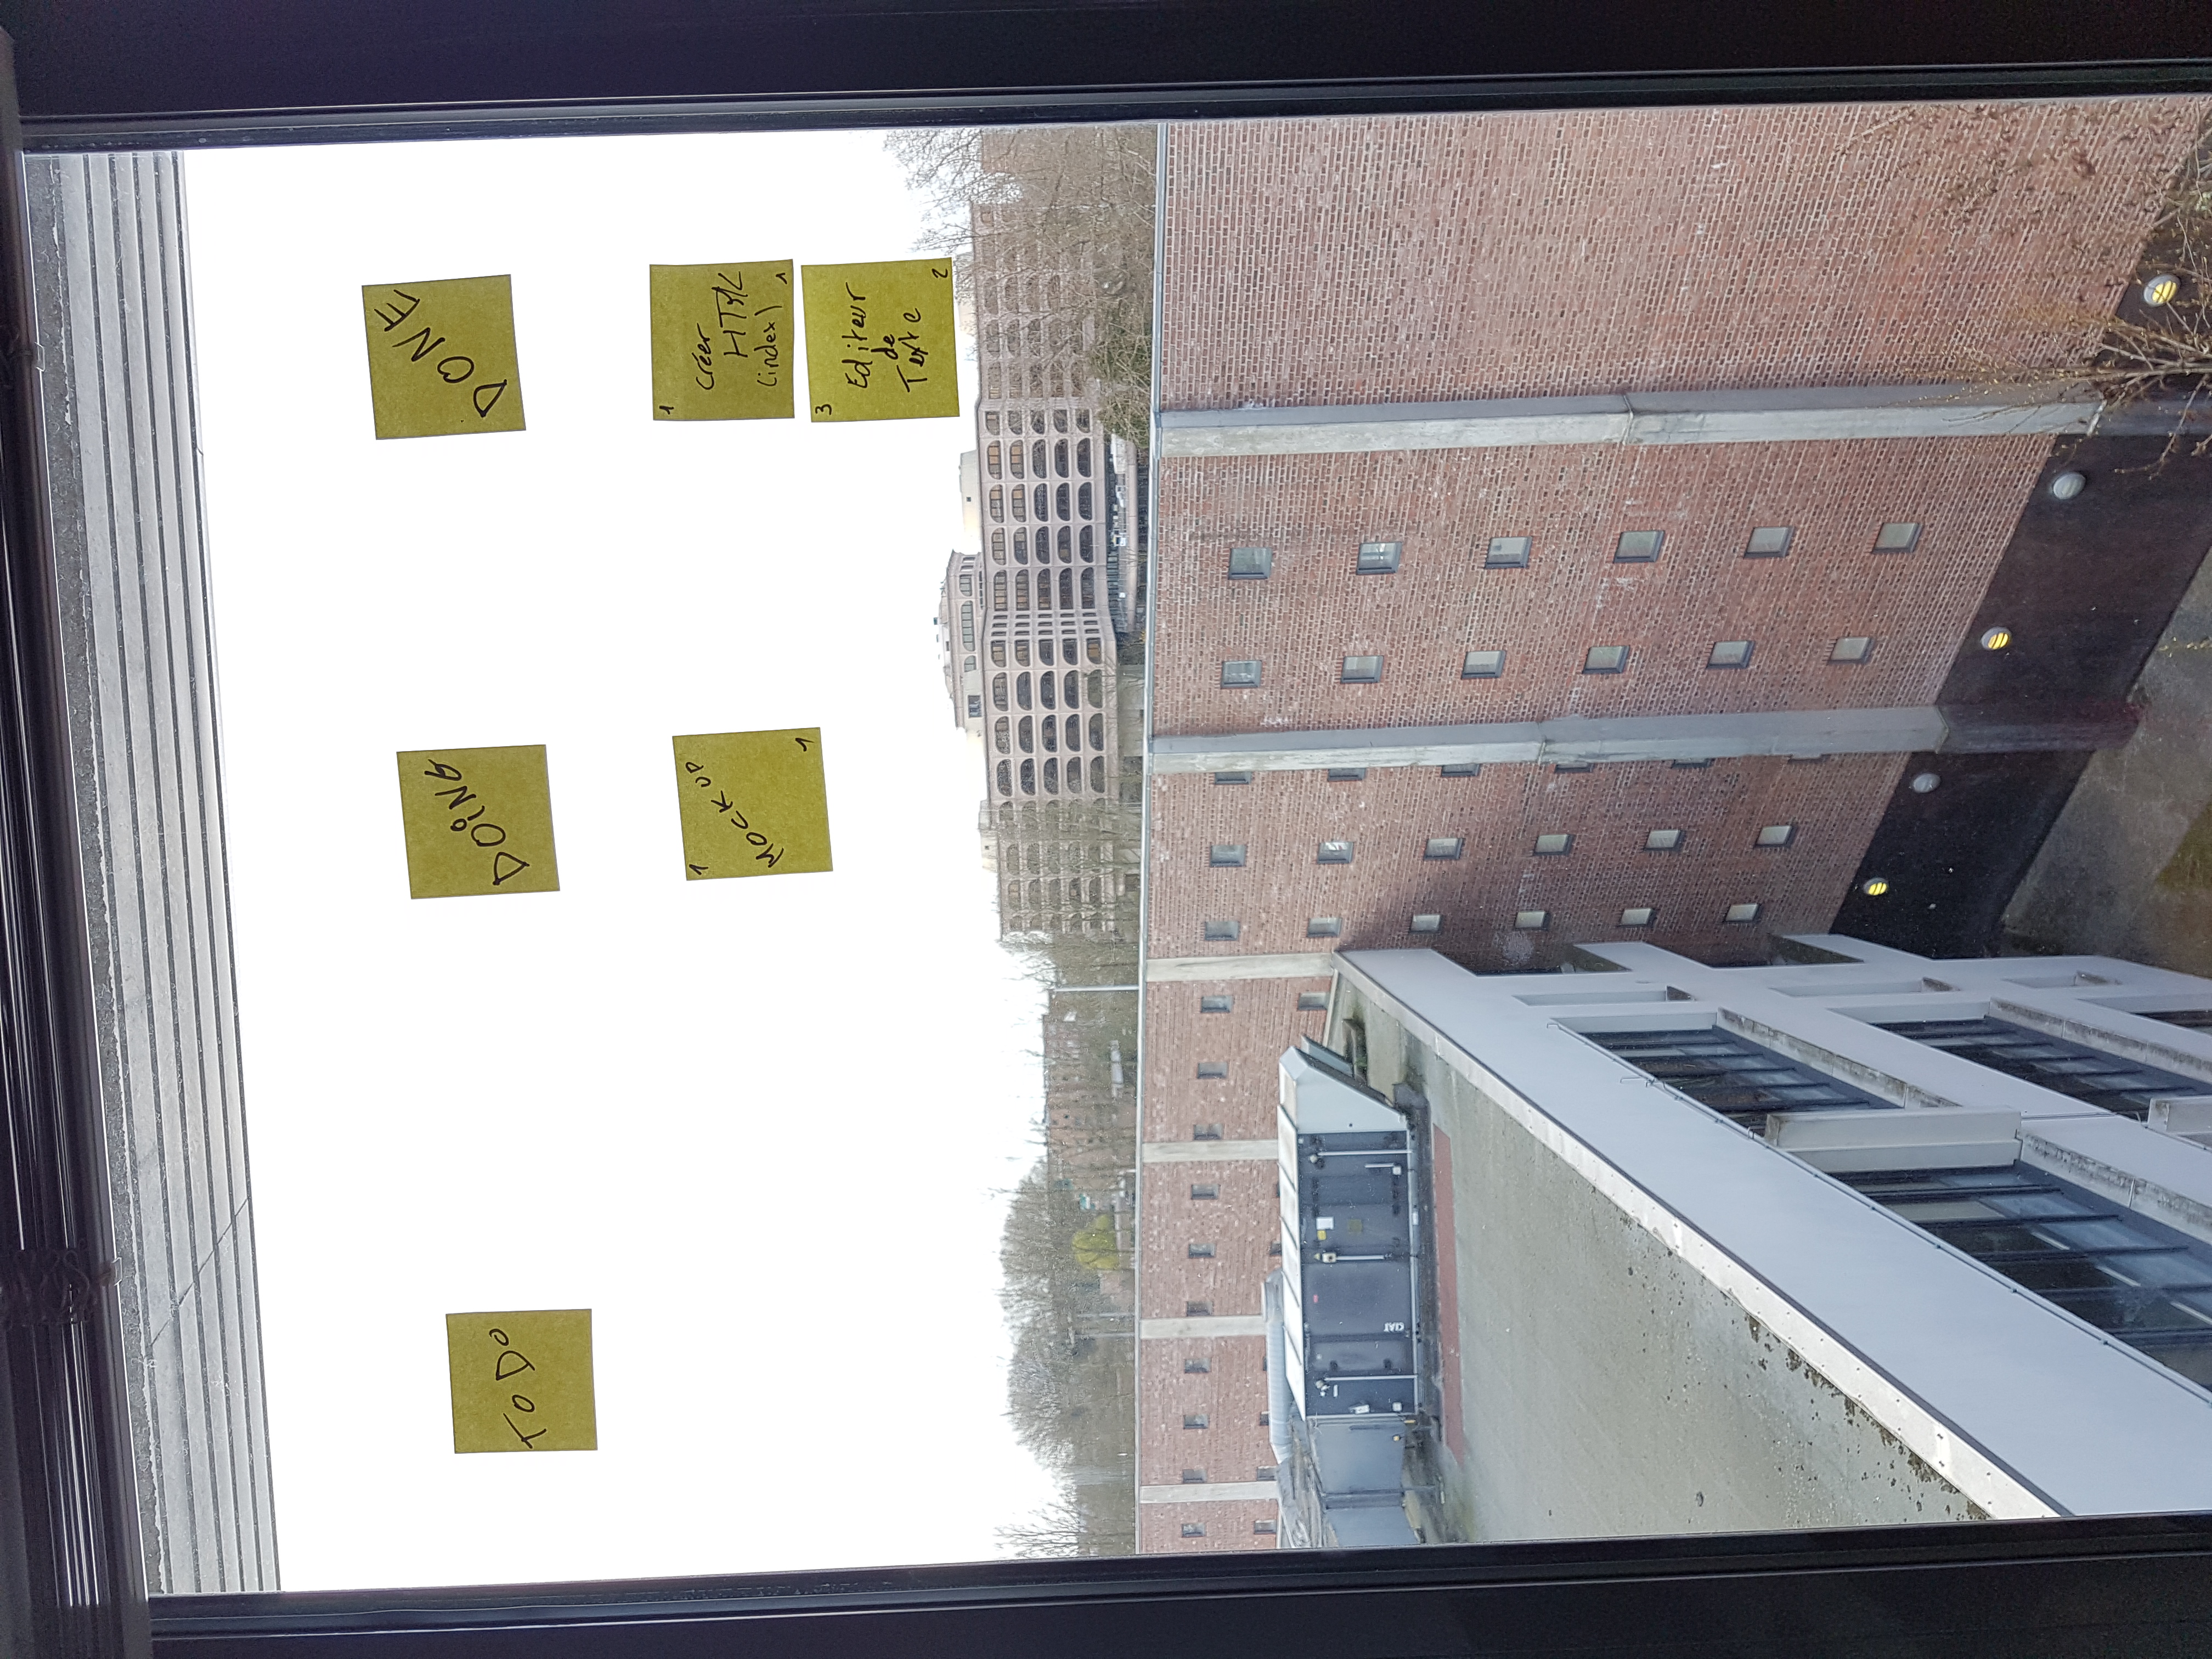 TO DO
DOING
DONE
1
MOCK UP
1
1
Créer
HTML
(index)
1
3
Editeur
de
Texte
2
CIAT